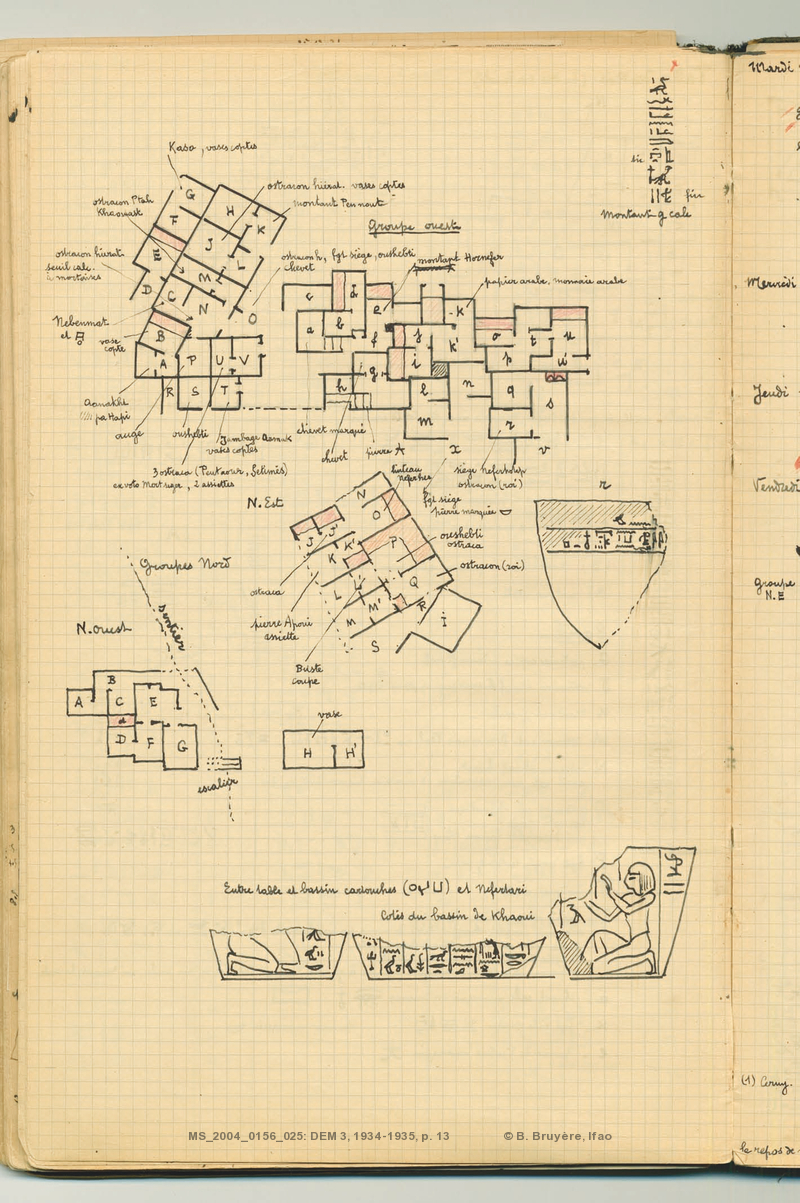 Mardi
Kasa, vases coptes
ostracon hiérat. vases coptes
montant Pennout
ostracon Ptah
Khaouast
sic
fin
Montant g cale
Groupe ouest
G
H
F
K
J
E
L
M
D
C
N
O
B
A
P
U
V
R
S
T
ostracon hiérat.
seuil calc.
à mortaises
ostracon h, fgt siège, oushebti
chevet
montant Hornefer
papier arabe, monnaie arabe
Mercredi
Nebenmat
et
vase
copte
c
d
e
k
a
b
f
j
k'
o
t
u
g
i
p
u'
h
l
n
q
s
m
r
x
v
Jeudi
Aanakht
pa Hapi
auge
oushebti
Jambage Aanak
vases coptes
chevet marqué
chevet
pierre A
3 ostraca (Pentaour, Selimès)
ex voto Mertseger, 2 assiettes
linteau
fgt siège
pierre marquée
ostracon (roi)
r
Vendredi
N. Est
N
O
J
J'
K
K'
P
L
L'
M
M'
Q
R
S
I
oushebti
ostraca
ostracon (roi)
ostraca
pierre Apoui
assiette
Buste
coupe
Groupe
N.E
Groupes Nord
sentier
N. ouest
A
B
C
E
d
D
F
G
escalier
vase
H
H'
Entre table et bassin cartouches et Nefertari
Cotés du bassin de Khaoui
(1) Cerny.
le repos de
MS_2004_0156_025: DEM 3, 1934-1935, p. 13
© B. Bruyère, Ifao